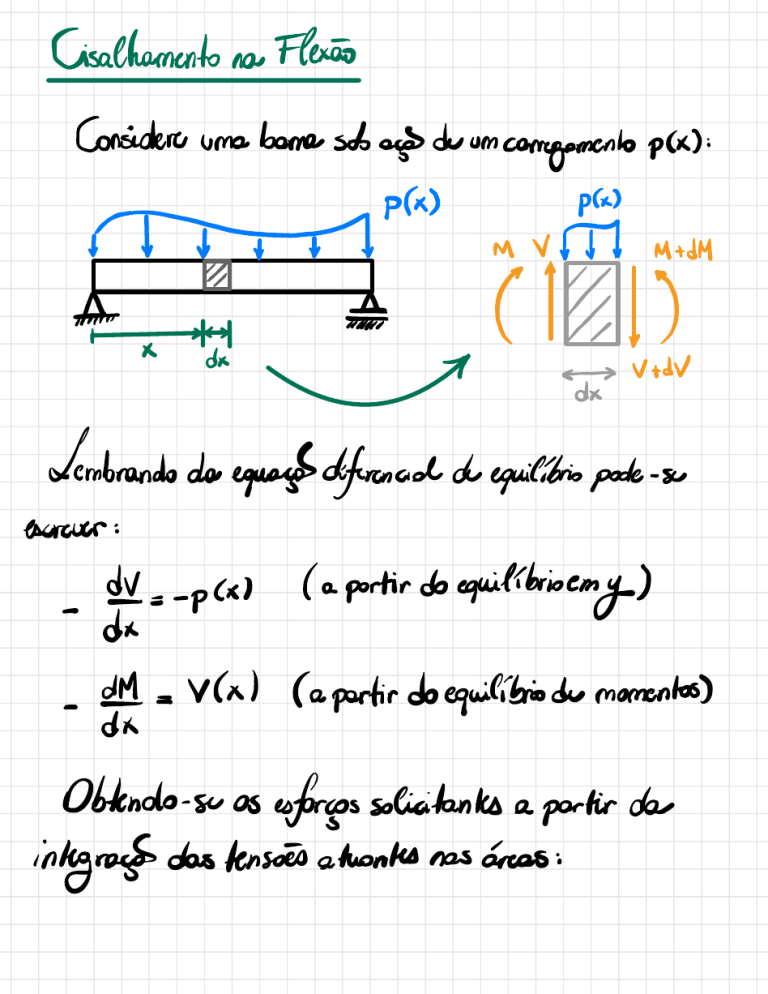 Cisalhamento na Flexão
Considere uma barra sob ação de um carregamento p(x):
p(x)
x
dx
p(x)
M V
M+dM
V+dV
dx
Lembrando da equação diferencial de equilíbrio pode-se
escrever:
- dV/dx = -p(x) (a partir do equilíbrio em y)
- dM/dx = V(x) (a partir do equilíbrio de momentos)
Obtendo-se os esforços solicitantes a partir da
integração das tensões atuantes nas áreas: